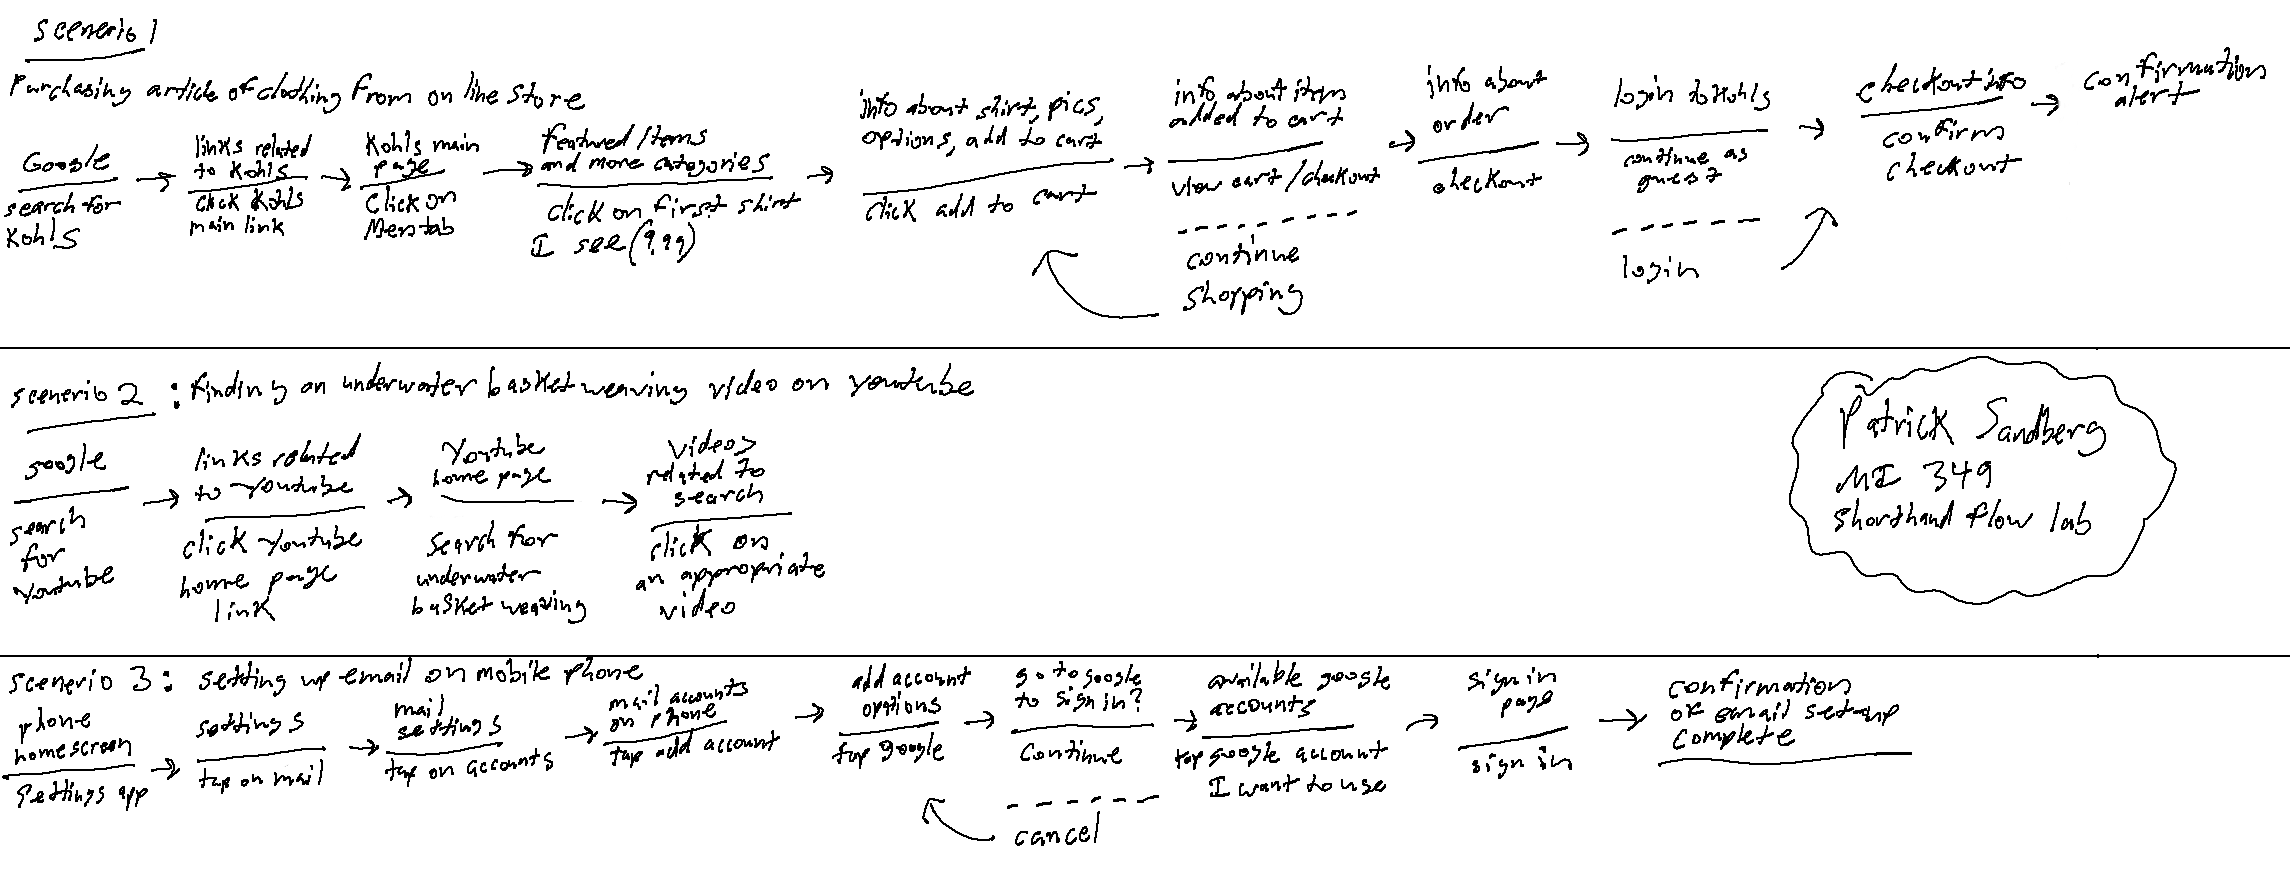 scenerio 1
Purchasing article of clothing from online store
Google
search for
Kohls
links related
to Kohls
click Kohls
main link
Kohls main
page
Click on
Mens tab
featured items
and more categories
click on first shirt
I see (9.99)
info about shirt, pics,
options, add to cart
click add to cart
info about item
added to cart
view cart / checkout
continue
shopping
info about
order
checkout
login to Kohls
continue as
guest
login
checkout info
confirm
checkout
confirmation
alert
scenerio 2 : finding an underwater basket weaving video on youtube
google
search
for
Youtube
links related
to Youtube
click Youtube
home page
link
Youtube
home page
Search for
underwater
basket weaving
videos
related to
search
click on
an appropriate
video
Patrick Sandberg
MI 349
Shorthand flow lab
scenerio 3: setting up email on mobile phone
phone
homescreen
Settings app
settings
tap on mail
mail
settings
tap on accounts
mail accounts
on phone
tap add account
add account
options
tap google
go to google
to sign in?
Continue
cancel
available google
accounts
tap google account
I want to use
sign in
page
sign in
confirmation
of email set-up
complete